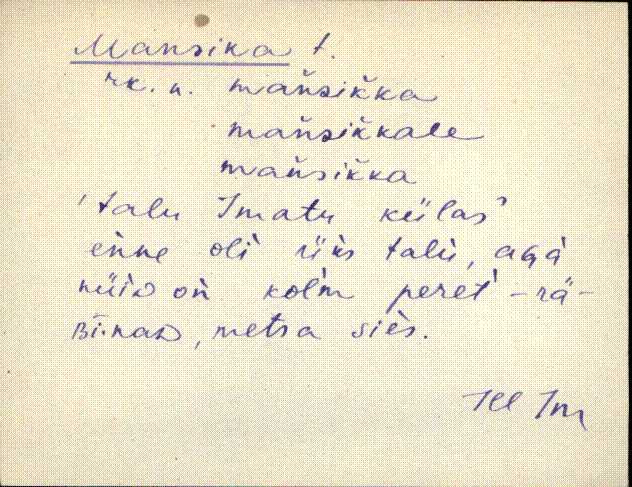 Mansika t.
rk. n. mańsiǩka
mańsiǩkale
mańsiǩka
'talu Imatu külas'
enne oĺi üks talu, aga
nüiD on kolm peret -rä-
Bi·naD, metsa sies.
Jõe Im